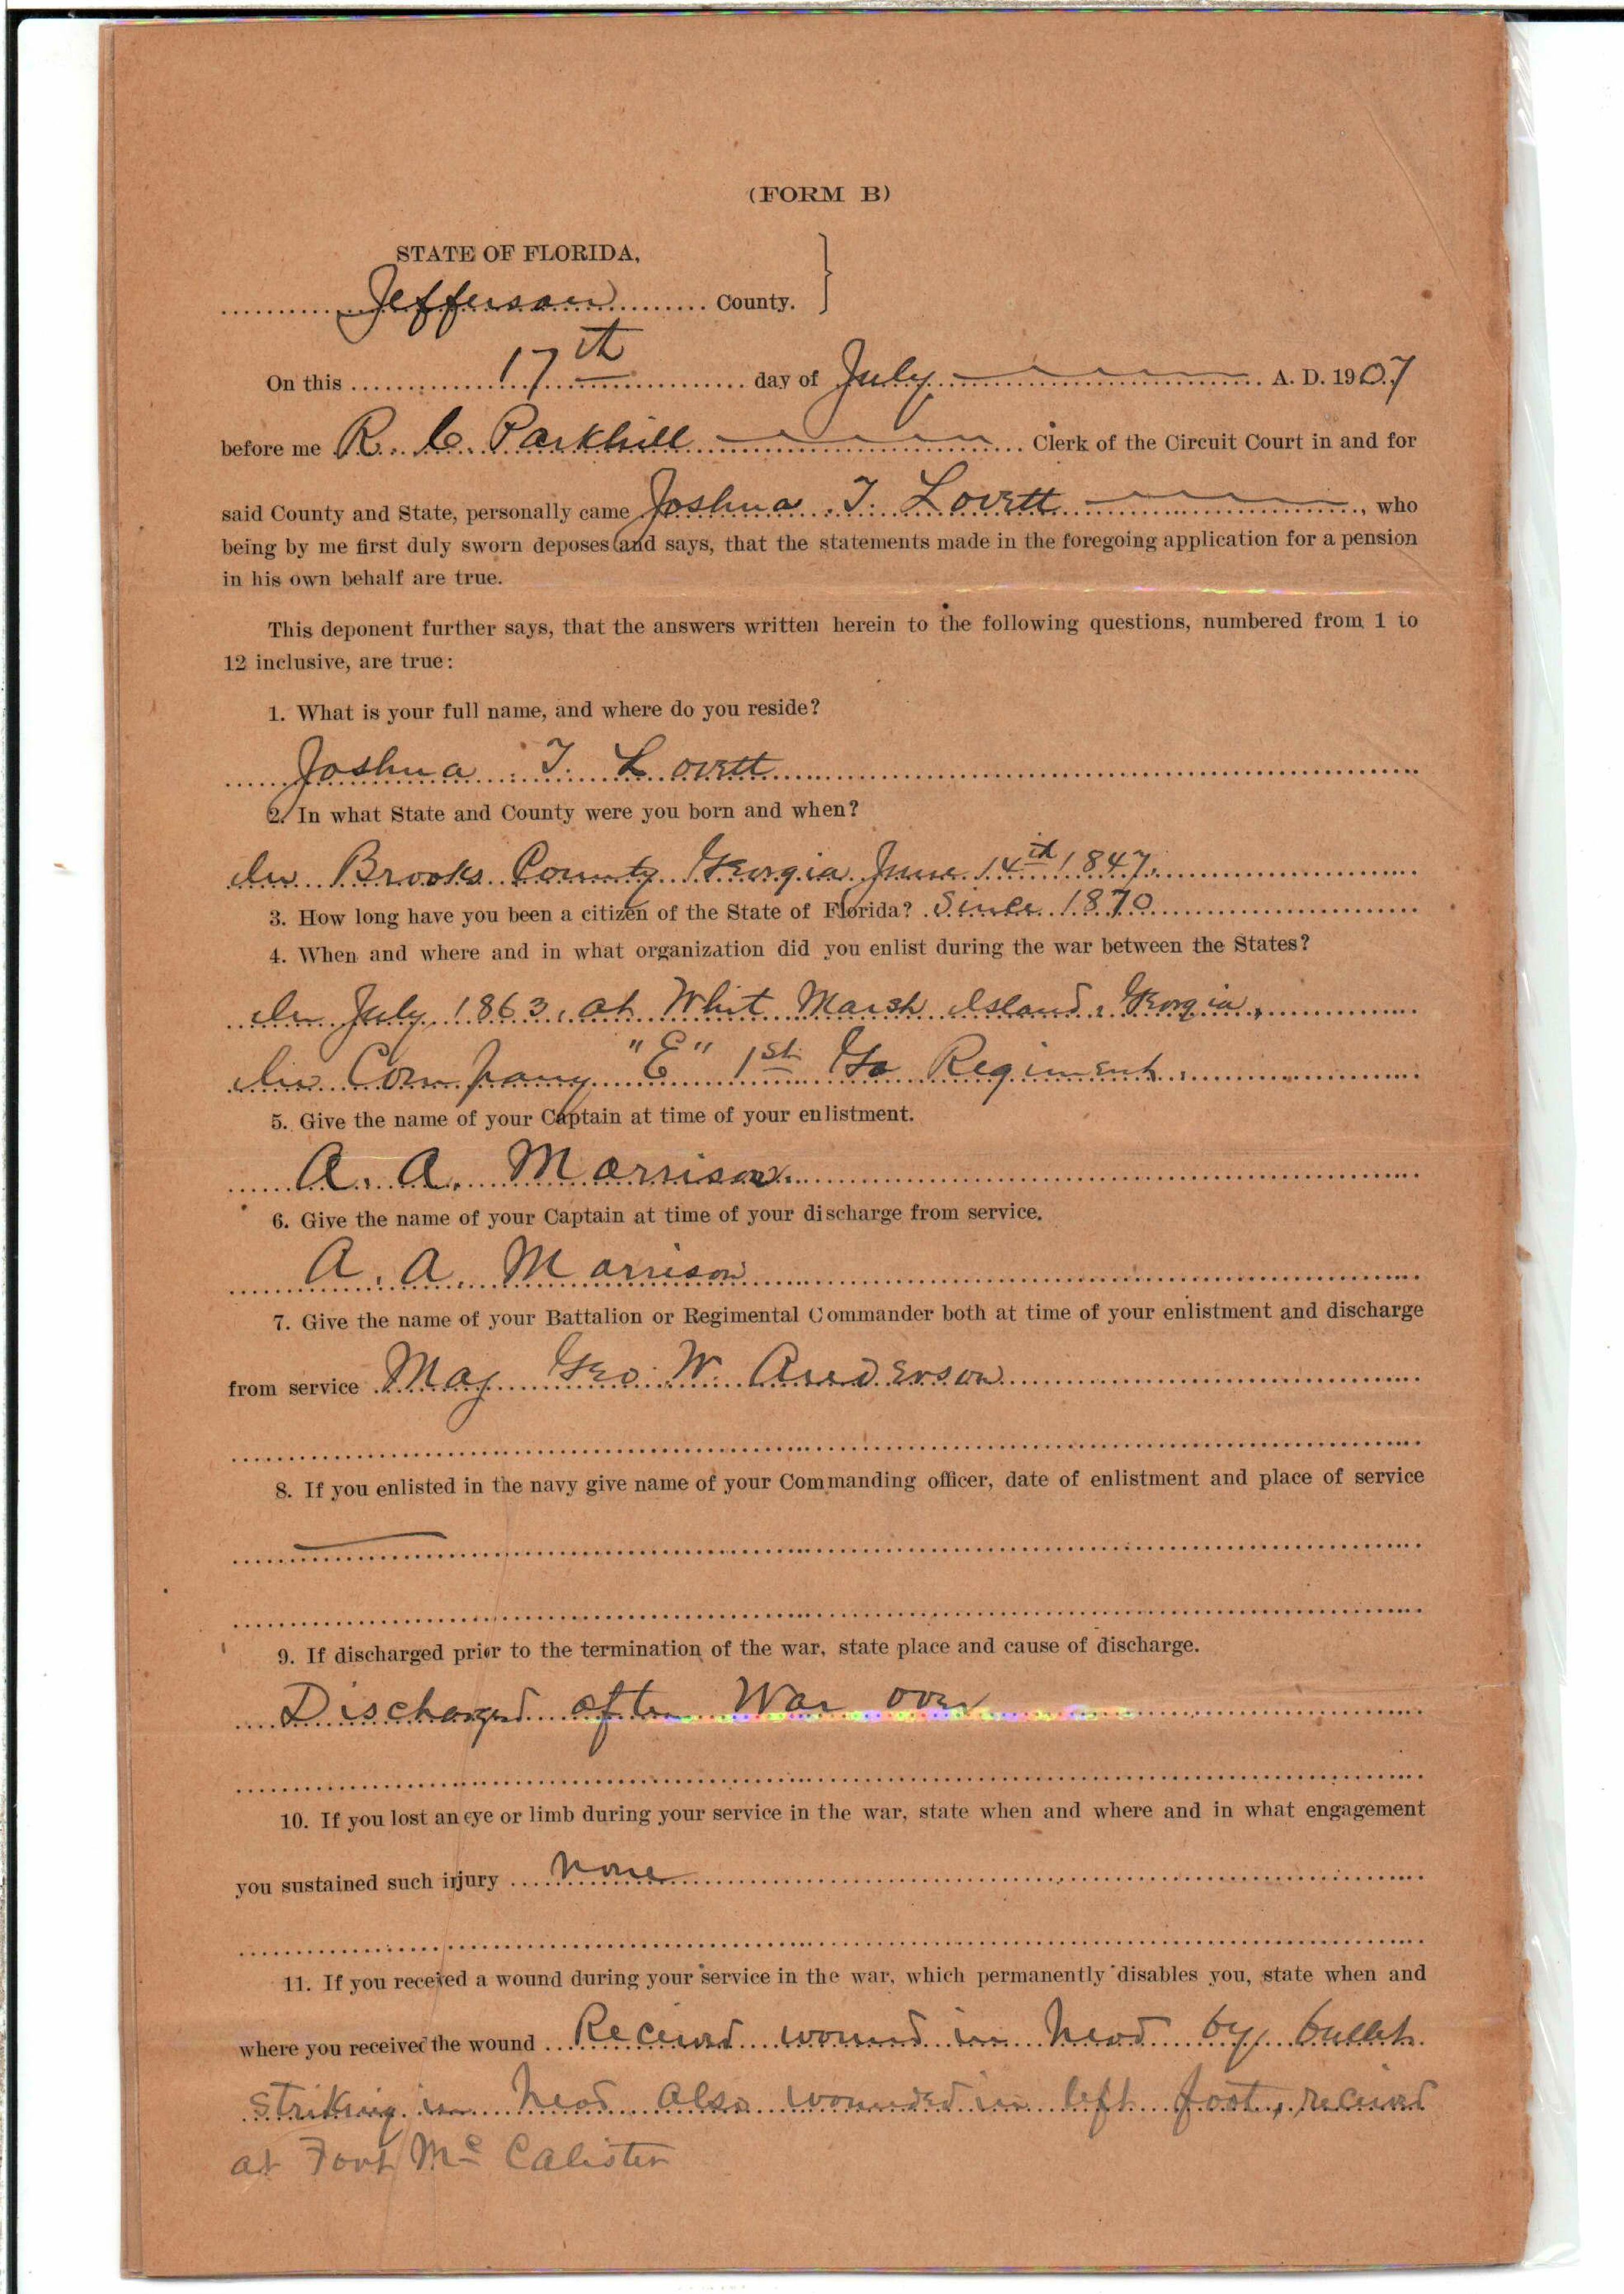 (FORM B)
STATE OF FLORIDA,
Jefferson County.
On this 17th day of July A. D. 1907
before me R. C. Parkhill Clerk of the Circuit Court in and for
said County and State, personally came Joshua T. Lovett, who
being by me first duly sworn deposes and says, that the statements made in the foregoing application for a pension
in his own behalf are true.
This deponent further says, that the answers written herein to the following questions, numbered from 1 to
12 inclusive, are true:
1. What is your full name, and where do you reside?
Joshua T. Lovett
2. In what State and County were you born and when?
In Brooks County Georgia June 14th 1847.
3. How long have you been a citizen of the State of Florida? Since 1870
4. When and where and in what organization did you enlist during the war between the States?
In July 1863, at Whit Marsh Island, Georgia,
In Company "E" 1st Ga Regiment.
5. Give the name of your Captain at time of your enlistment.
A. A. Morrison.
6. Give the name of your Captain at time of your discharge from service.
A. A. Morrison
7. Give the name of your Battalion or Regimental Commander both at time of your enlistment and discharge
from service Maj Geo. W. Anderson
8. If you enlisted in the navy give name of your Commanding officer, date of enlistment and place of service
9. If discharged prior to the termination of the war, state place and cause of discharge.
Discharged after War over
10. If you lost an eye or limb during your service in the war, state when and where and in what engagement
you sustained such injury none
11. If you receied a wound during your service in the war, which permanently disables you, state when and
where you received the wound Received wound in head by bullet
striking in head also wounded in left foot, received
at Fort Mc Calister